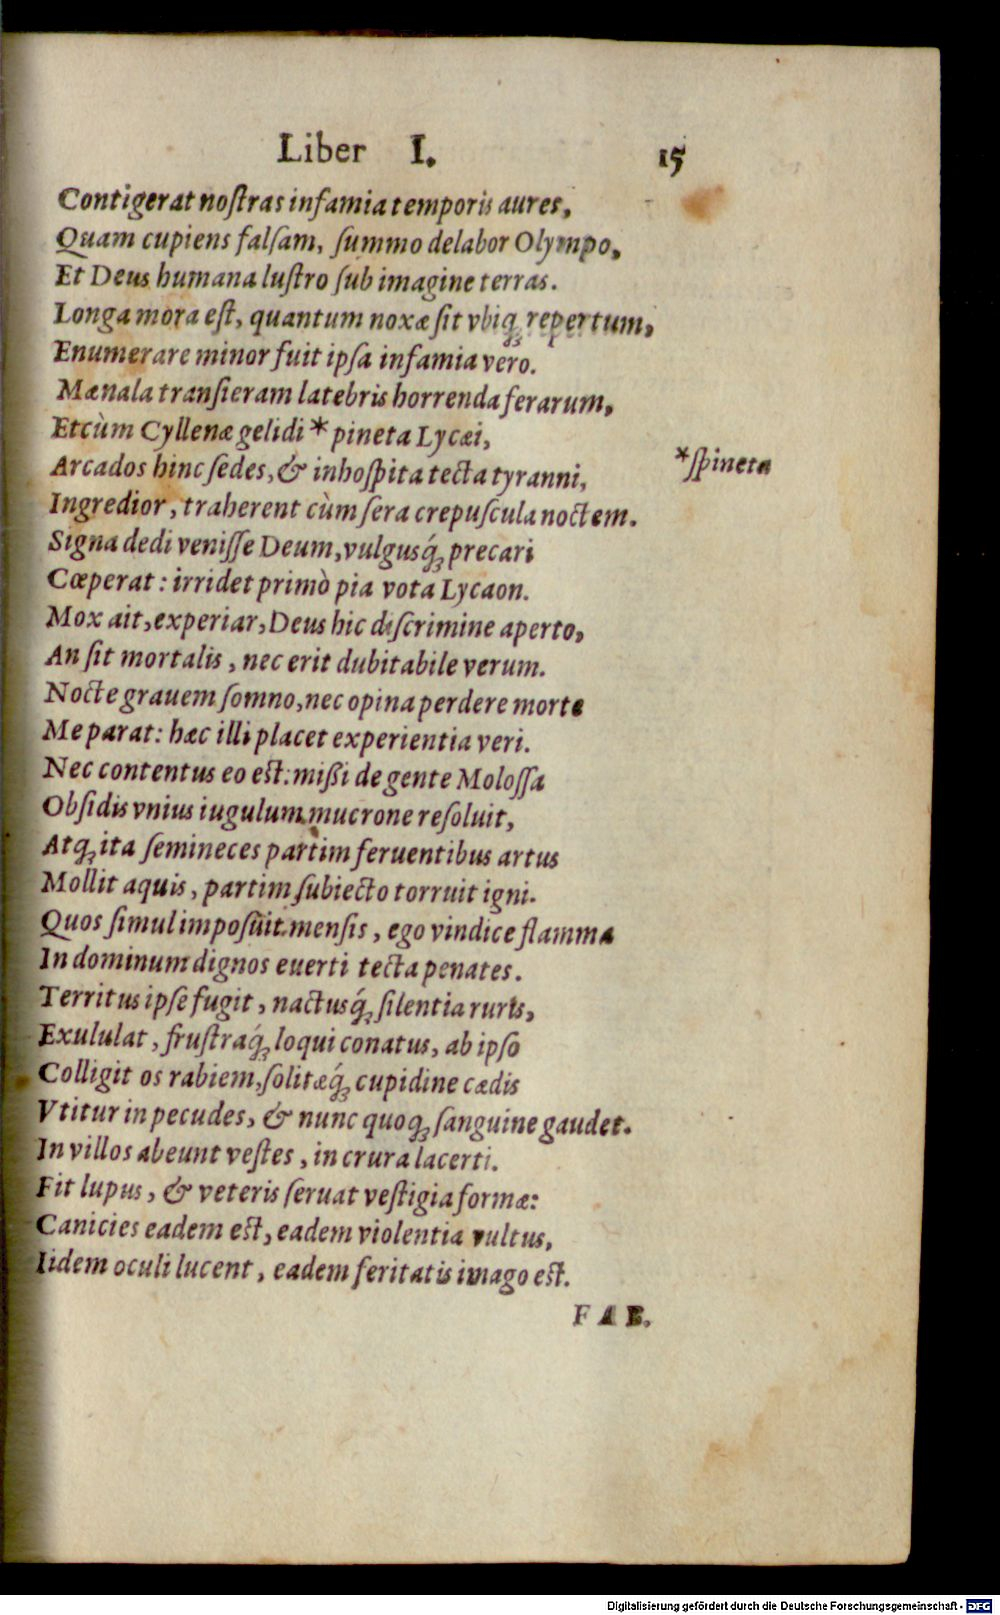 Liber I. 15
Contigerat noſtras infamia temporis aures,
Quam cupiens falſam, ſummo delabor Olympo,
Et Deus humana luſtro ſub imagine terras.
Longa mora eſt, quantum noxæ ſit vbiq́ꝫ repertum,
Enumerare minor fuit ipſa infamia vero.
Mænala tranſieram latebris horrenda ferarum,
Et cùm Cyllenæ gelidi * pineta Lycæi,
Arcados hinc ſedes, & inhoſpita tecta tyranni, *ſpineta
Ingredior, traherent cùm ſera crepuſcula noctem.
Signa dedi veniſſe Deum, vulgusq́ꝫ precari
Cœperat: irridet primò pia vota Lycaon.
Mox ait, experiar, Deus hic diſcrimine aperto,
An ſit mortalis, nec erit dubitabile verum.
Nocte grauem ſomno, nec opina perdere morte
Me parat: hæc illi placet experientia veri.
Nec contentus eo eſt: mißi de gente Moloſſa
Obſidis vnius iugulum mucrone reſoluit,
Atqꝫ ita ſemineces partim feruentibus artus
Mollit aquis, partim ſubiecto torruit igni.
Quos ſimul impoſuit menſis, ego vindice flamma
In dominum dignos euerti tecta penates.
Territus ipſe fugit, nactusq́ꝫ ſilentia ruris,
Exululat, fruſtraq́ꝫ loqui conatus, ab ipſo
Colligit os rabiem, ſolitæq́ꝫ cupidine cædis
Vtitur in pecudes, & nunc quoqꝫ ſanguine gaudet.
In villos abeunt veſtes, in crura lacerti.
Fit lupus, & veteris ſeruat veſtigia formæ:
Canicies eadem eſt, eadem violentia vultus,
Iidem oculi lucent, eadem feritatis imago eſt.
FAB.
Digitalisierung gefördert durch die Deutsche Forschungsgemeinschaft - DFG